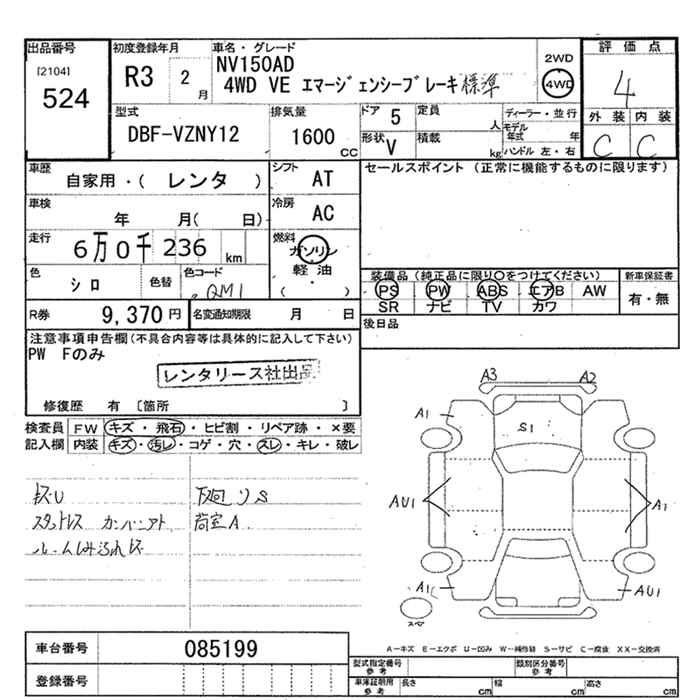 出品番号
[2104]
524
初度登録年月
R3 2月
車名・グレード
NV150AD
4WD VE エマージェンシーブレーキ 標準
2WD
4WD
評価点
4
外装 内装
C C
型式
DBF-VZNY12
排気量
1600 CC
ドア 5
形状 V
定員 人
積載 kg
ディーラー・並行
モデル年式 年
ハンドル 左・右
車歴
自家用・( レンタ )
シフト AT
車検
年 月( 日)
冷房 AC
走行
6万0千236 km
燃料
ガソリン
軽油
( ・ )
色 シロ
色替
色コード QM1
R券 9,370円
名変通知期限 月 日
セールスポイント (正常に機能するものに限ります)
装備品 (純正品に限り○をつけてください)
PS PW ABS エアB AW
SR ナビ TV カワ
新車保証書
有・無
後日品
注意事項申告欄(不具合内容等は具体的に記入して下さい)
PW Fのみ
レンタリース社出品
修復歴 有 〔箇所 〕
検査員記入欄
FW キズ・飛石・ヒビ割・リペア跡・×要
内装 キズ・汚レ・コゲ・穴・スレ・キレ・破レ
キズU
下廻りS
スタットレス
荷室A
A3 A2
A1
S1
AU1
A1
A1
AU1
スペア
A-キズ E-エクボ U-凹み W-補修跡 S-サビ C-腐食 XX-交換済
車台番号 085199
登録番号
型式指定番号 参考
類別区分番号 参考
車庫証明用 参考
長さ cm 幅 cm 高さ cm